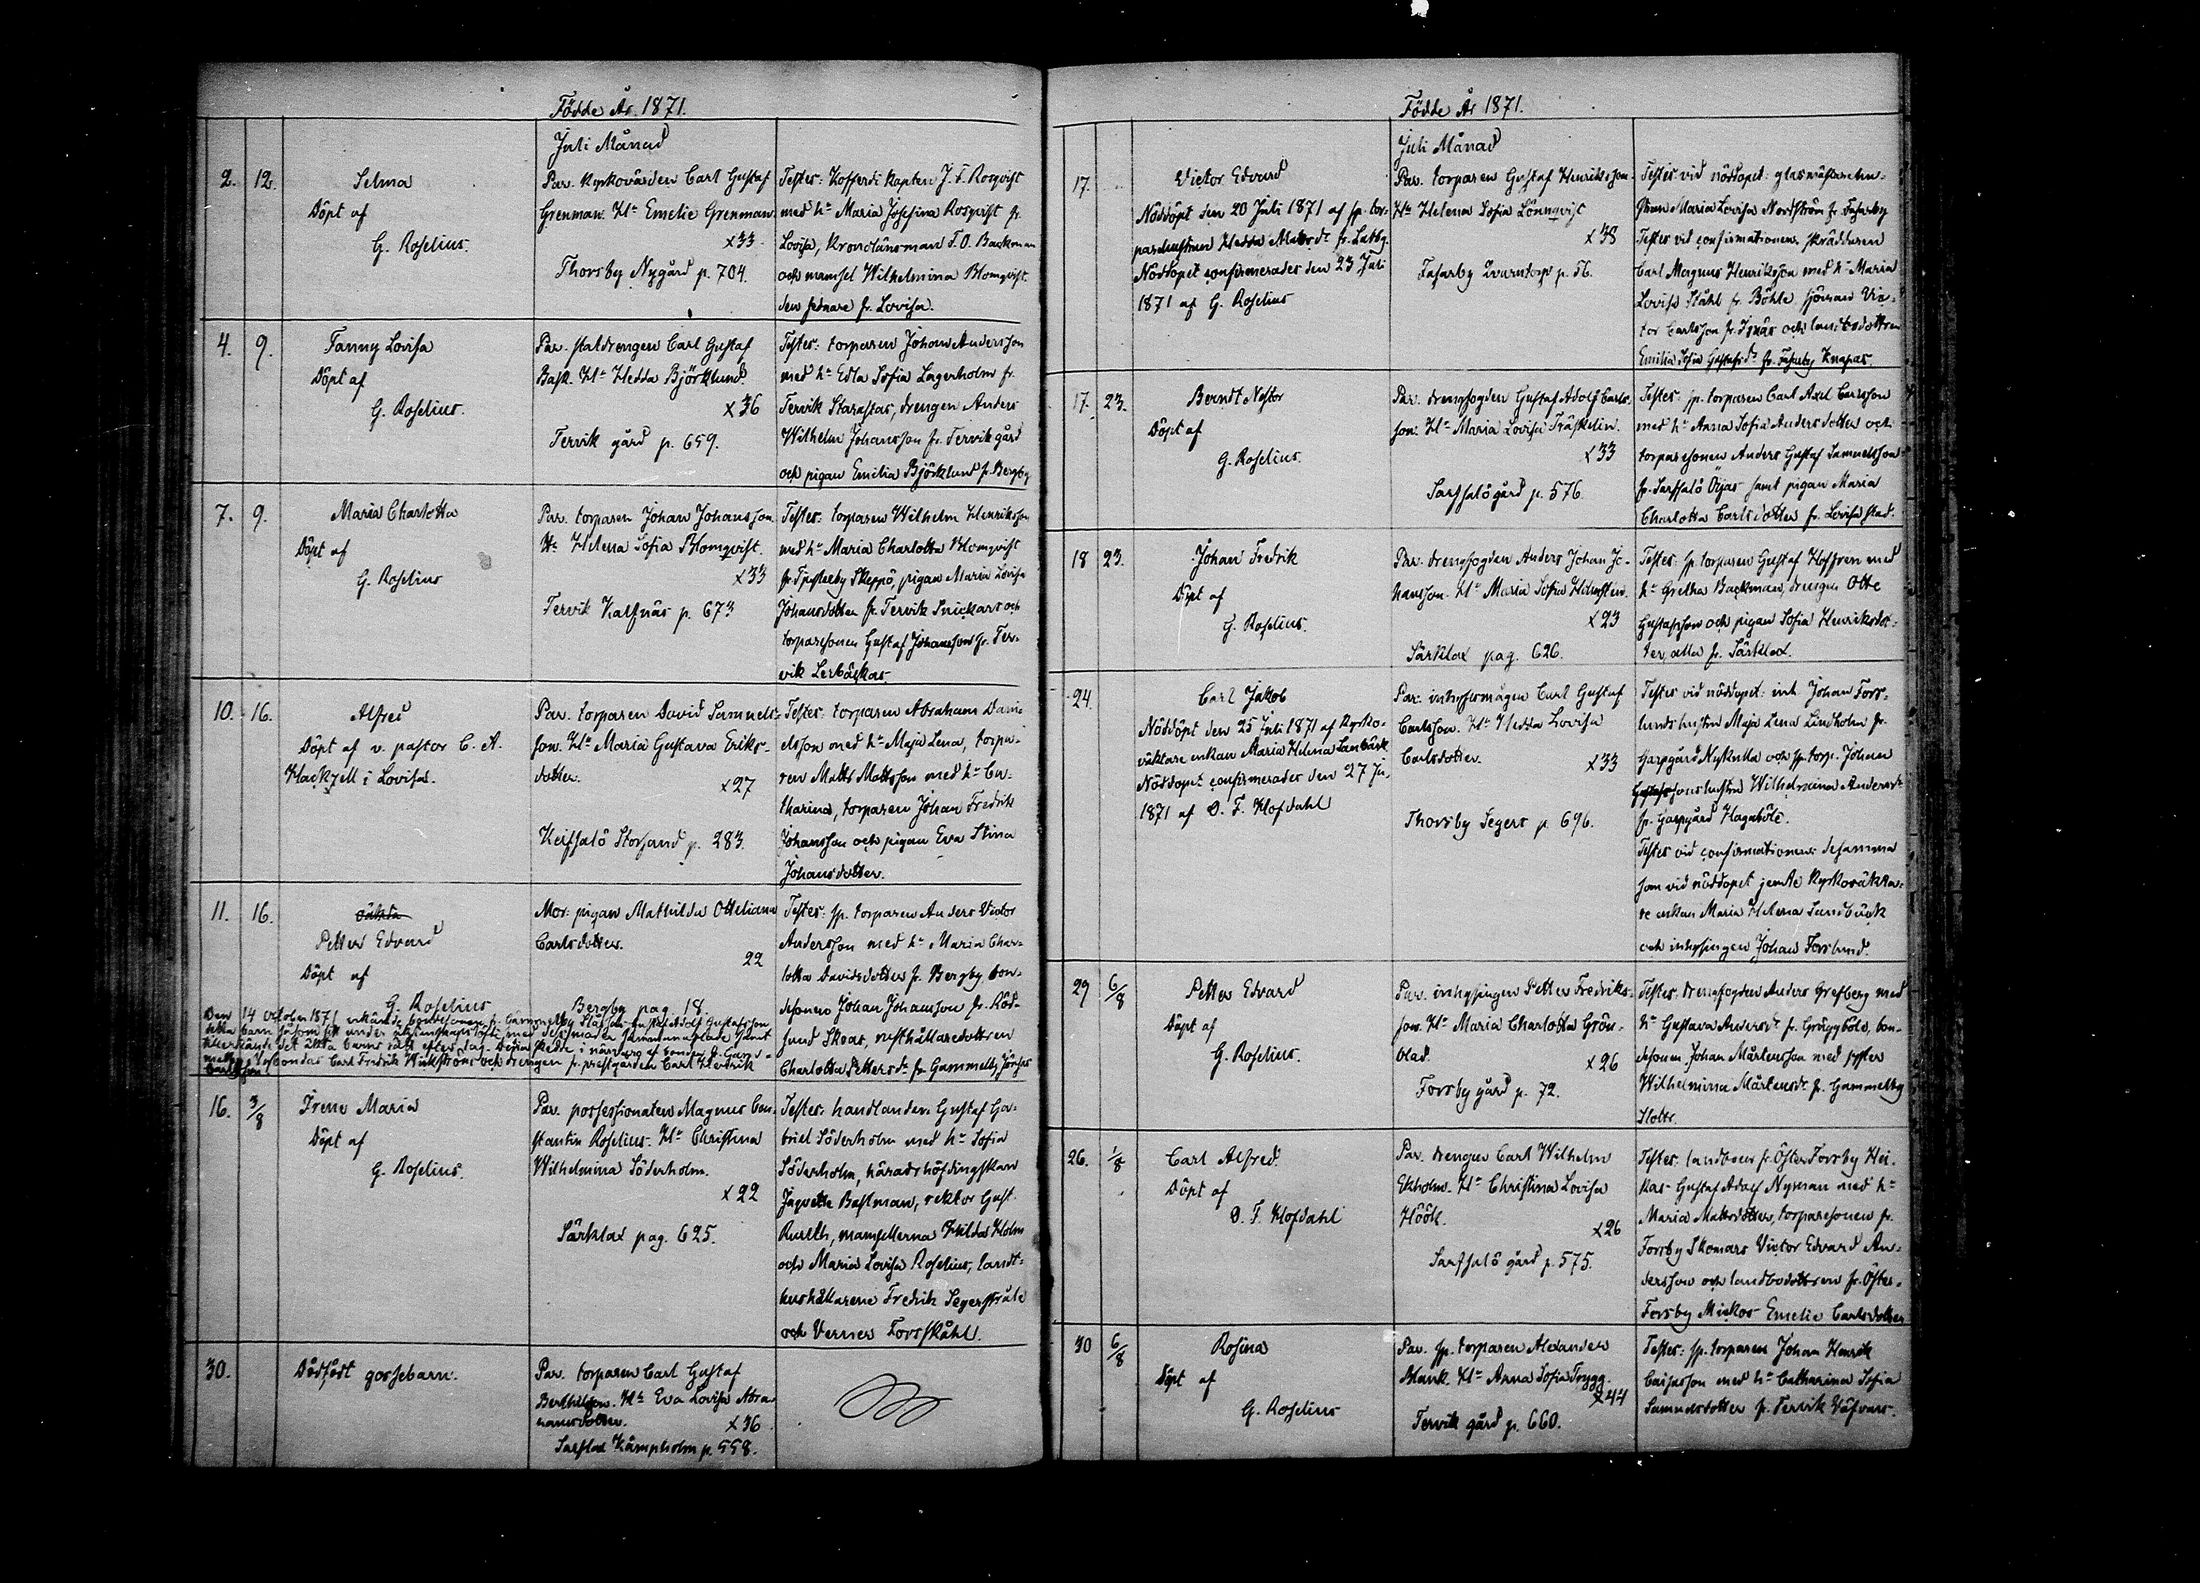 Födde År 1871.
Juli Månad
2. 12. Selma
Döpt af
G. Roselius.
Par. Kyrkovärden Carl Gustaf
Grenman. H:u Emelie Grenman.
x33.
Thorsby Nygård p. 704.
Testes: Kofferdi Kapten J. F. Rosqvist
med h:u Maria Josefina Rosqvist fr.
Lovisa, Kronolänsman F. O. Backman
och mamsel Wilhelmina Blomqvist
den senare fr. Lovisa.
4. 9. Fanny Lovisa
Döpt af
G. Roselius.
Par. staldrengen Carl Gustaf
Bask. H:u Hedda Björklund.
x36
Tervik gård p. 659.
Testes: torparen Johan Andersson
med h:u Edla Sofia Lagerholm fr.
Tervik Starastas, drengen Anders
Wilhelm Johansson fr. Tervik gård
och pigan Emilia Björklund fr. Bergby
7. 9. Maria Charlotta
Döpt af
G. Roselius
Par. torparen Johan Johansson
H:u Helena Sofia Blomqvist.
x33
Tervik Kalfnäs p. 673
Testes: torparen Wilhelm Henriksson
med h:u Maria Charlotta Blomqvist
fr. Skeppö, pigan Maria Lovisa
Johansdotter fr. Tervik Snickars och
torparesonen Gustaf Johansson fr. Ter-
vik Lerbäckas.
10. 16. Alfred
Döpt af v. pastor C. A.
Hackzell i Lovisa.
Par. torparen David Samuels-
son. H:u Maria Gustava Eriks-
dotter.
x27
Keifsalö Storsand p. 283.
Testes: torparen Abraham Dani-
elsson med h:u Maja Lena, torpa-
ren Matts Mattsson med h:u Ca-
tharina, torparen Johan Fredrik
Johansson och pigan Eva Stina
Johansdotter.
11. 16. oäkta
Petter Edvard
Döpt af
G. Roselius
Mor: pigan Mathilda Otteliana
Carlsdotter.
22
Bergby pag. 18.
Testes: sp. torparen Anders Victor
Andersson med h:u Maria Char-
lotta Davidsdotter fr. Bergby, bon-
desonen Johan Johansson fr. Röd-
sund Skoas, rusthållaredottren
Charlotta Pettersd:r fr. Gammelby Jörjas
Den 14 October 1871 erkände bondesonen fr. Gammelby Gustaf Adolf Gustafsson
detta barn såsom sitt under äktenskapslöfte med dess moder sammanaflade samt
tillerkände det äkta barns rätt efter sig. Detta skedde i närvaro af bonden fr. Gam-
melby bondas Carl Fredrik Wickström och drengen fr. prestgården Carl Hendrik
Carlsson.
16. 3/8 Irene Maria
Döpt af
G. Roselius.
Par. possessionaten Magnus Con-
stantin Roselius. H:u Christina
Wilhelmina Söderholm.
x22
Särklax pag. 625.
Testes: handlanden Gustaf Ga-
briel Söderholm med h:u Sofia
Söderholm, häradshöfdingskan
Jaquette Bastman, rektor Gust.
mamsellerna Hilda Holm
och Maria Lovisa Roselius, landt-
hushållarene Fredrik Segerstråle
och Verner Forsskåhl.
30. Dödfödt gossebarn.
Par. torparen Carl Gustaf
Berthilsson. H:u Eva Lovisa Abra-
hamsdotter.
x36.
Sarflax Kämpholm p. 558.
Födde År 1871.
Juli Månad
17. Victor Edvard
Nöddöpt den 20 Juli 1871 af sp. tor-
parehustrun Hedda Mattsd:r fr. Latby.
Nöddopet confirmerades den 23 Juli
1871 af G. Roselius
Par. torparen Gustaf Henriksson.
H:u Helena Sofia Lönnqvist
x38
Fasarby Qvarntorp p. 56.
Testes vid nöddopet: glasmästarehu-
strun Maria Lovisa Nordström fr. Fasarby
Testes vid confirmationen: skräddaren
Carl Magnus Henriksson med h:u Maria
Lovisa Ståhl fr. Böhle, sjöman Vic-
tor Carlsson fr. Isnäs och landbodottren
Emilia Sofia Gustafsd:r fr. Fasarby Knapas.
17. 23. Berndt Nestor
Döpt af
G. Roselius.
Par. drengfogden Gustaf Adolf Carls-
son. H:u Maria Lovisa Träskelin.
x33
Sarfsalö gård p. 576.
Testes: sp. torparen Carl Axel Carlsson
med h:u Anna Sofia Andersdotter och
torparesonen Anders Gustaf Samuelsson
fr. Sarfsalö Öijas samt pigan Maria
Charlotta Carlsdotter fr. Lovisa stad.
18 23. Johan Fredrik
Döpt af
G. Roselius.
Par. drengfogden Anders Johan Jo-
hansson. H:u Maria Sofia Holmsten.
x23
Särklax pag. 626.
Testes: sp. torparen Gustaf Hoffren med
h:u Gretha Backman, drengen Otto
Gustafsson och pigan Sofia Henriksdot-
ter, alla fr. Särklax.
24. Carl Jakob
Nöddöpt den 25 Juli 1871 af Kyrko-
väktare enkan Maria Helena Sandbäck.
Nöddopet confirmerades den 27 Ju.
1871 af O. F. Hofdahl
Par. inhysesmågen Carl Gustaf
Carlsson. H:u Hedda Lovisa
Carlsdotter.
x33
Thorsby Segers p. 696.
Testes vid nöddopet: inh. Johan Fors-
lunds hustru Maja Lena Lindholm fr.
Garpgård Nykulla och sp. torp. Johan
Gustafssons hustru Wilhelmina Andersd:r
fr. Garpgård Hagaböle.
Testes vid confirmationen: desamma
som vid nöddopet jemte Kyrkoväkta-
re enkan Maria Helena Sandbäck
och inhysingen Johan Forslund.
29 6/8 Petter Edvard
Döpt af
G. Roselius.
Par. inhysingen Petter Fredriks-
son. H:u Maria Charlotta Grön-
blad.
x26
Forsby gård p. 72.
Testes: drengfogden Anders Grefberg med
h:u Gustava Andersd:r fr. Gråggböle, bon-
desonen Johan Mårtensson med syster
Wilhelmina Mårtensd:r fr. Gammelby
Slotts.
26. 1/8 Carl Alfred.
Döpt af
O. F. Hofdahl
Par. drengen Carl Wilhelm
Ekholm. H:u Christina Lovisa
Höök.
x26
Sarfsalö gård p. 575.
Testes: landbon fr. Öster Forsby Hei-
kas Gustaf Adolf Nyman med h:u
Maria Mattsdotter, torparesonen fr.
Forsby Skomars Victor Edvard An-
dersson och landbodottren fr. Öster-
Forsby Mickos Emelie Carlsdotter
30 6/8 Rosina
Döpt af
G. Roselius
Par. sp. torparen Alexander
Blank. H:u Anna Sofia Trygg.
x44
Tervik gård p. 660.
Testes: sp. torparen Johan Henrik
Caisasson med h:u Catharina Sofia
Samuelsdotter fr. Tervik Väfvars.